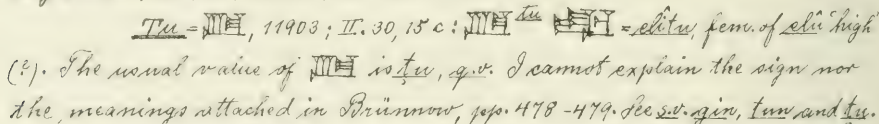 Tu = 11903; II. 30, 15 c: tu = elîtu, fem. of elû 'high'
(?). The usual value of is ṭu, q.v. I cannot explain the sign nor
the meanings attached in Brünnow, pp. 478-479. See s.v. gin, tun and ṭu.